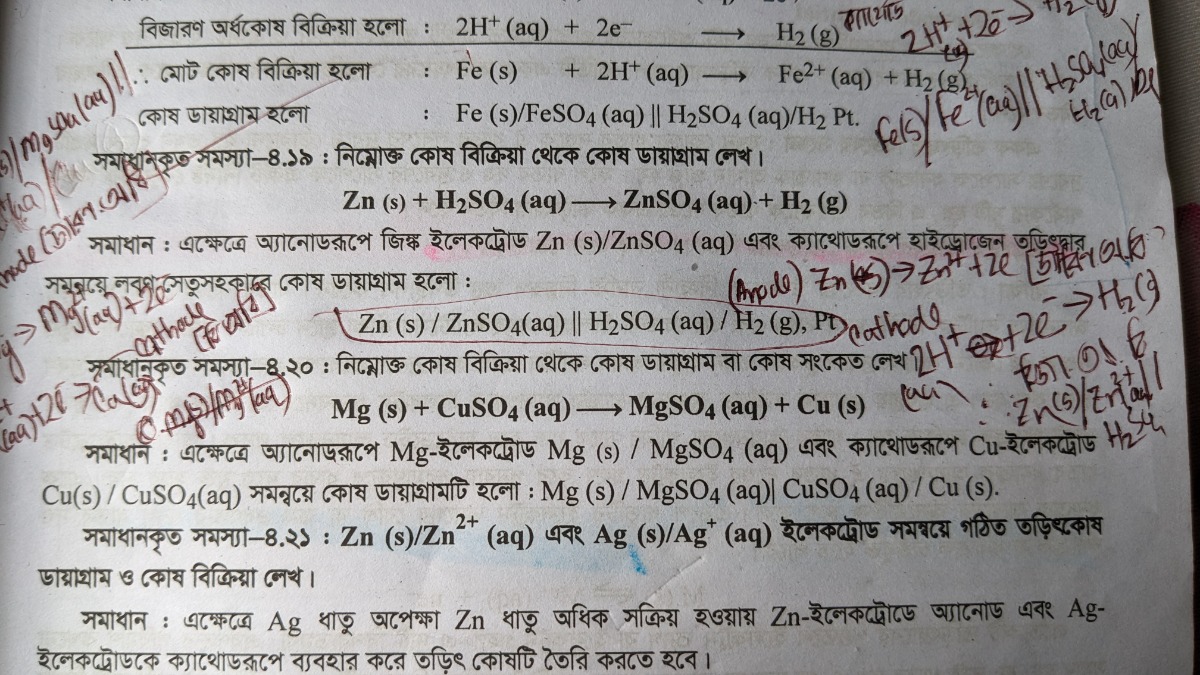 বিজারণ অর্ধকোষ বিক্রিয়া হলো : 2H⁺ (aq) + 2e⁻ ⟶ H₂ (g)
ক্যাথোড
2H⁺ + 2e⁻ → H₂ (g)
(aq)
∴ মোট কোষ বিক্রিয়া হলো : Fe (s) + 2H⁺ (aq) ⟶ Fe²⁺ (aq) + H₂ (g)
কোষ ডায়াগ্রাম হলো : Fe (s)/FeSO₄ (aq) || H₂SO₄ (aq)/H₂ Pt.
Fe(s)/Fe²⁺(aq)||H₂SO₄(aq)/
H₂(g), Pt
MgSO₄(aq)||
সমাধানকৃত সমস্যা–৪.১৯ : নিম্নোক্ত কোষ বিক্রিয়া থেকে কোষ ডায়াগ্রাম লেখ।
Zn (s) + H₂SO₄ (aq) ⟶ ZnSO₄ (aq) + H₂ (g)
সমাধান : এক্ষেত্রে অ্যানোডরূপে জিঙ্ক ইলেকট্রোড Zn (s)/ZnSO₄ (aq) এবং ক্যাথোডরূপে হাইড্রোজেন তড়িৎদ্বার
সমন্বয়ে লবণ সেতুসহকারে কোষ ডায়াগ্রাম হলো :
(Anode) Zn(s) → Zn²⁺ + 2e
Mg²⁺(aq) + 2e
cathode
Zn (s) / ZnSO₄(aq) || H₂SO₄ (aq) / H₂ (g), Pt
cathode
2H⁺ + 2e⁻ → H₂(g)
(aq)
সমাধানকৃত সমস্যা–৪.২০ : নিম্নোক্ত কোষ বিক্রিয়া থেকে কোষ ডায়াগ্রাম বা কোষ সংকেত লেখ
(aq)+2e⁻ → Cu(s)
Mg (s) + CuSO₄ (aq) ⟶ MgSO₄ (aq) + Cu (s)
∴ Zn(s)/Zn²⁺(aq)||
H₂SO₄
সমাধান : এক্ষেত্রে অ্যানোডরূপে Mg-ইলেকট্রোড Mg (s) / MgSO₄ (aq) এবং ক্যাথোডরূপে Cu-ইলেকট্রোড
Cu(s) / CuSO₄(aq) সমন্বয়ে কোষ ডায়াগ্রামটি হলো : Mg (s) / MgSO₄ (aq)| CuSO₄ (aq) / Cu (s).
সমাধানকৃত সমস্যা–৪.২১ : Zn (s)/Zn²⁺ (aq) এবং Ag (s)/Ag⁺ (aq) ইলেকট্রোড সমন্বয়ে গঠিত তড়িৎকোষ
ডায়াগ্রাম ও কোষ বিক্রিয়া লেখ।
সমাধান : এক্ষেত্রে Ag ধাতু অপেক্ষা Zn ধাতু অধিক সক্রিয় হওয়ায় Zn-ইলেকট্রোডে অ্যানোড এবং Ag-
ইলেকট্রোডকে ক্যাথোডরূপে ব্যবহার করে তড়িৎ কোষটি তৈরি করতে হবে।